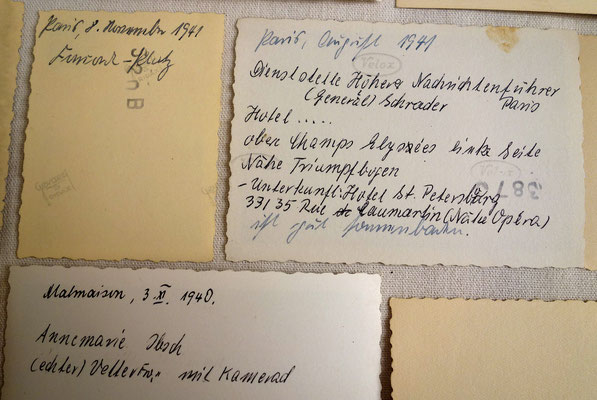 Paris, 8. November 1941
320 B
Paris, August 1941
Velox
Dienststelle Höherer Nachrichtenführer
(General) Schrader Paris
Hotel .....
ober Champs Elysées linke Seite
Nähe Triumpfbogen
- Unterkunft: Hotel St. Petersburg
33/35 Rue Caumartin (Nähe Opéra)
ist gut sonnenbaden.
387
Malmaison, 3. XI. 1940.
Annemarie
(echter) mit Kamerad